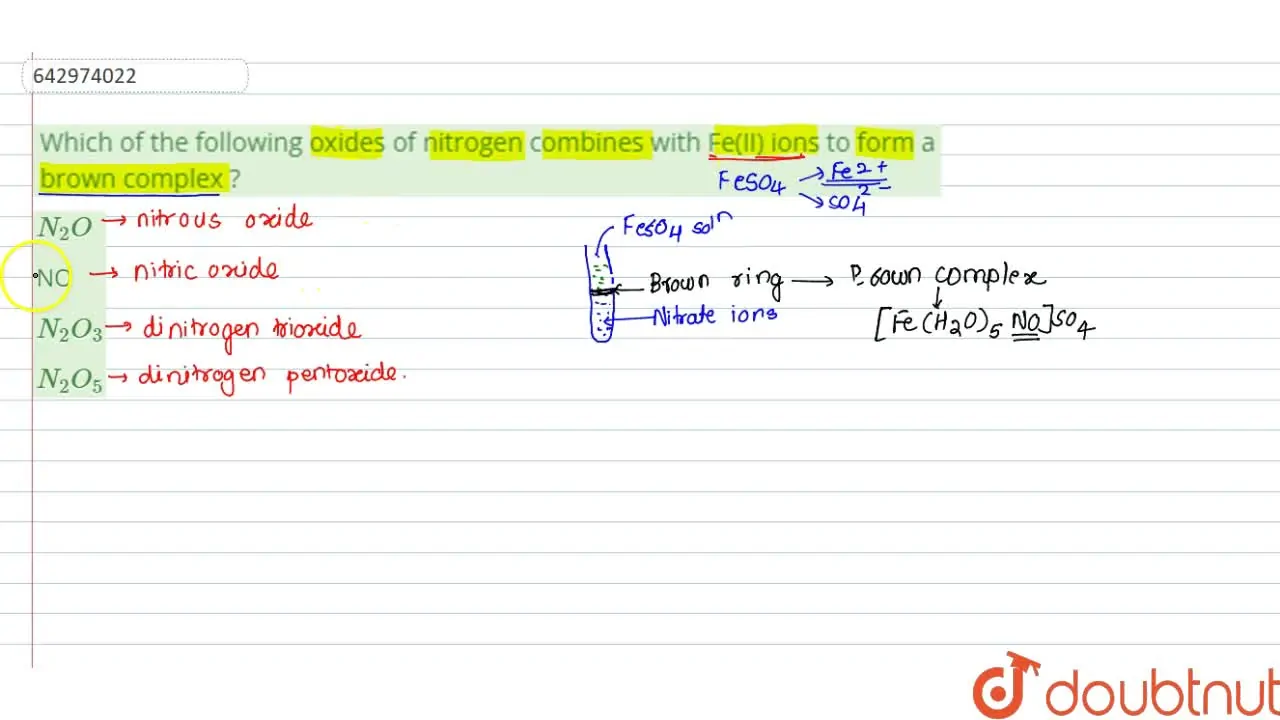 642974022
Which of the following oxides of nitrogen combines with Fe(II) ions to form a
brown complex ?
FeSO4 → Fe2+
→ SO4 2-
N2O → nitrous oxide
NO → nitric oxide
N2O3 → dinitrogen trioxide
N2O5 → dinitrogen pentoxide.
FeSO4 soln
Brown ring → Brown complex
Nitrate ions
[Fe(H2O)5 NO]SO4
doubtnut